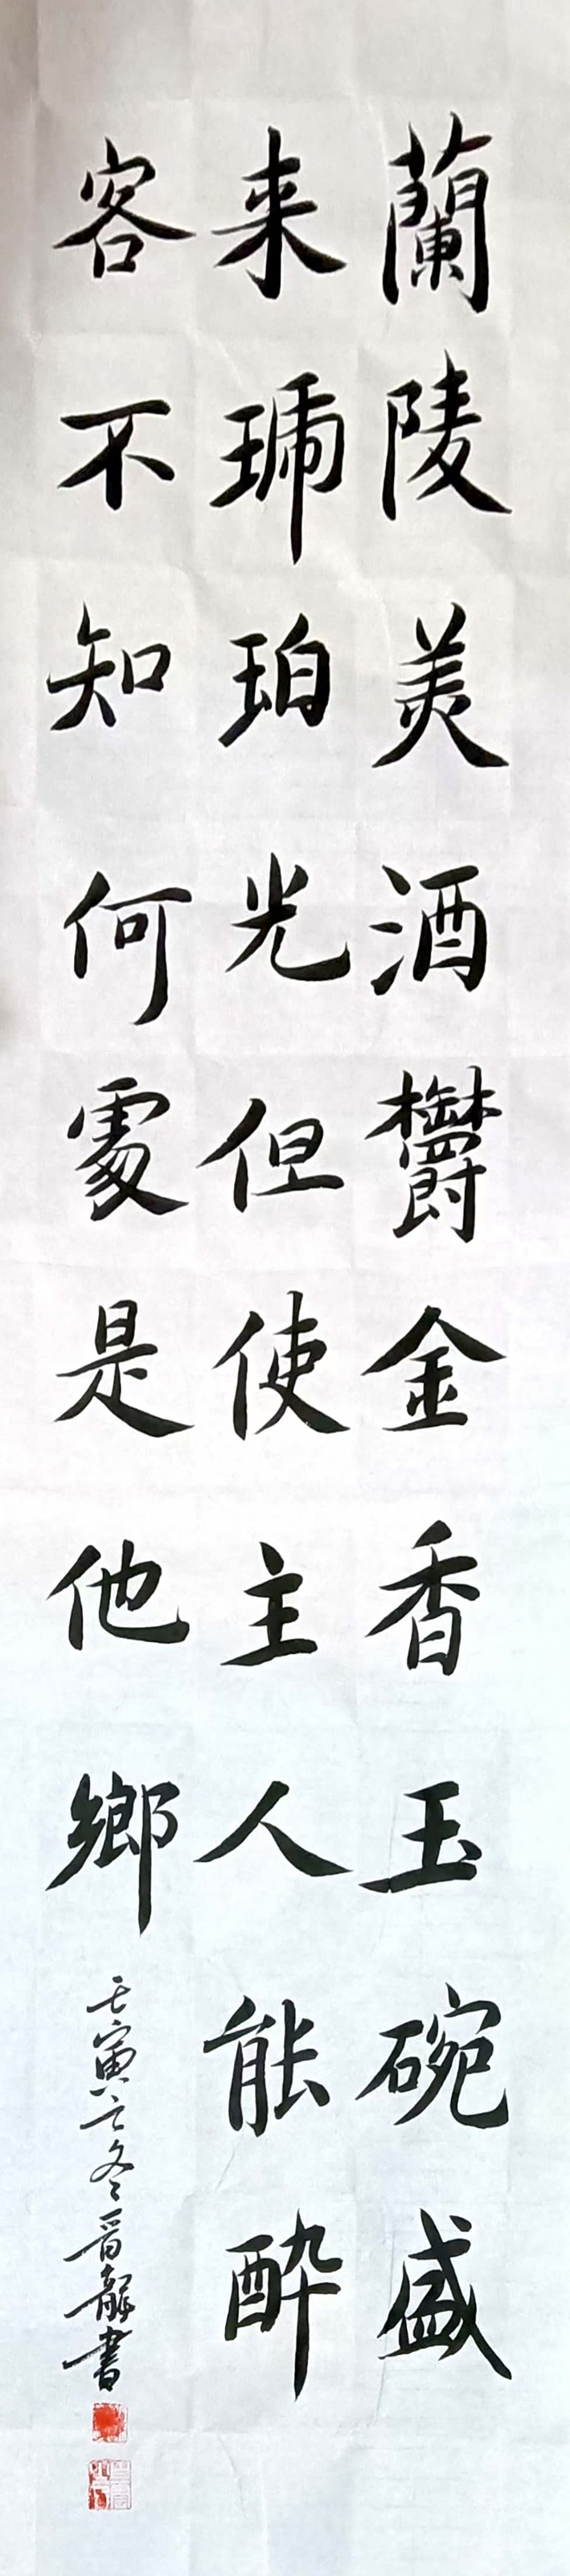 蘭陵美酒鬱金香玉碗盛
来琥珀光但使主人能酔
客不知何處是他鄉
壬寅之冬晋龍書